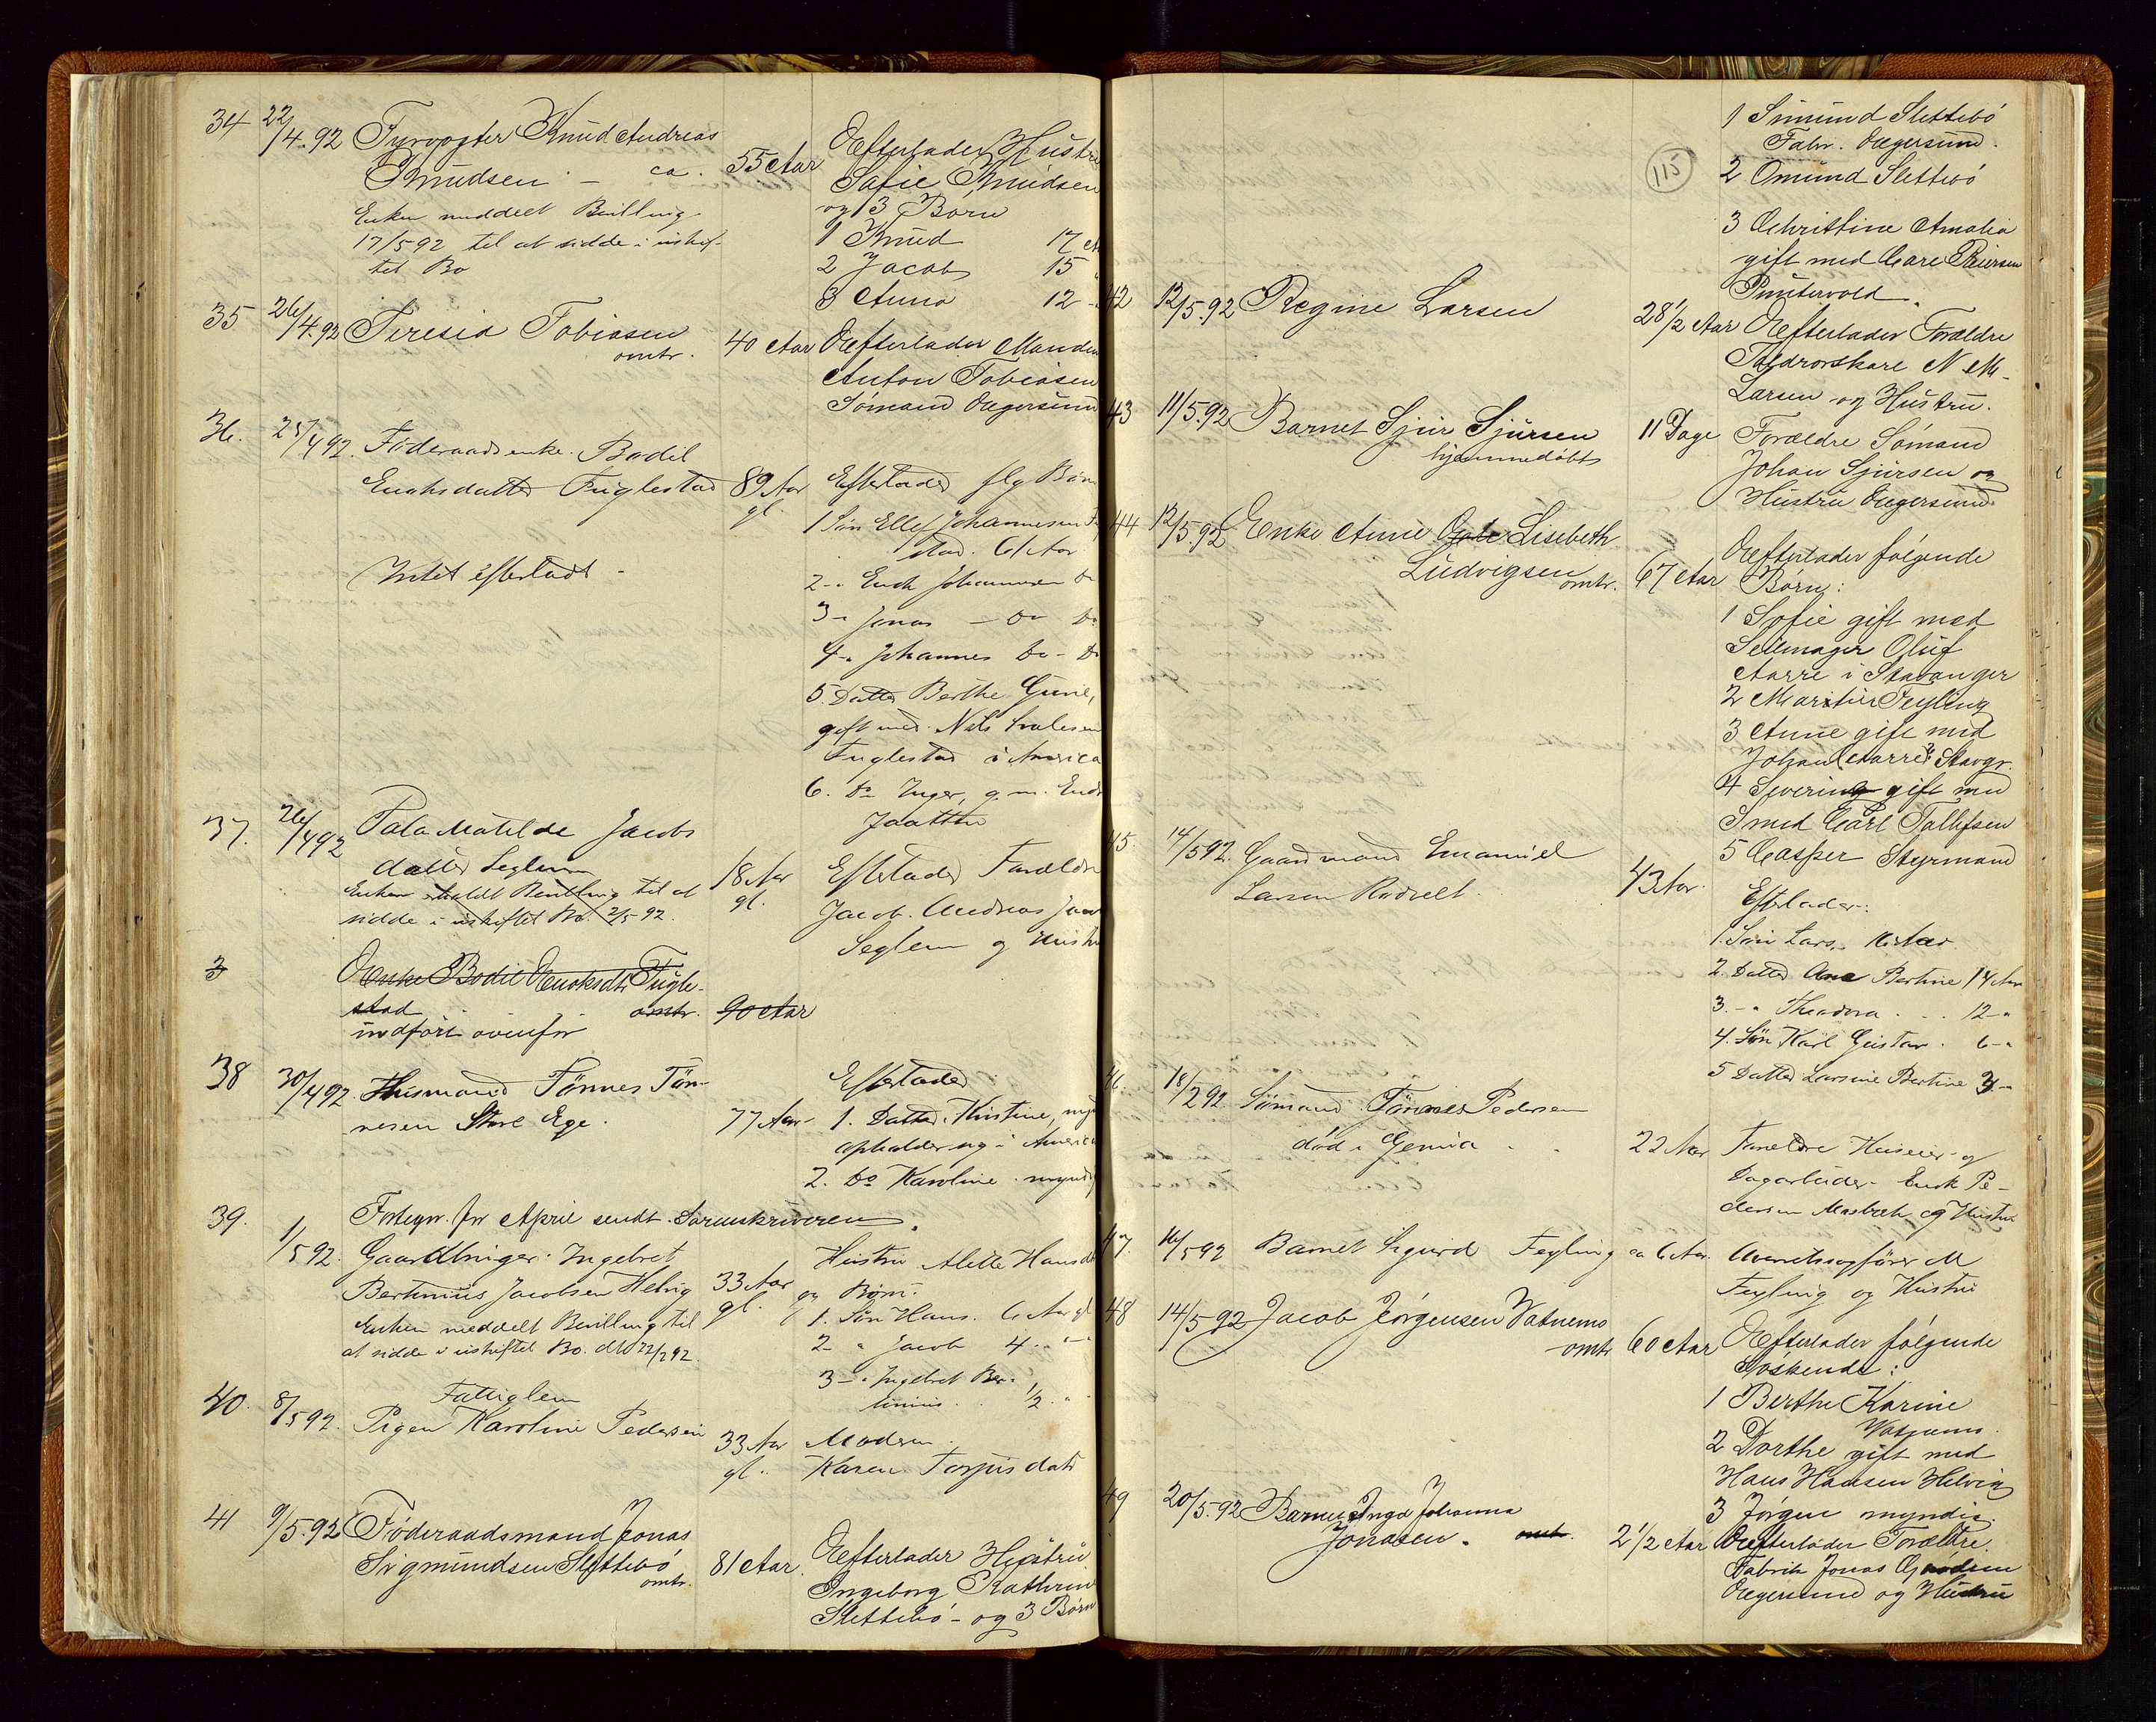 34 22/4.92 Fyrvogter Knud Andreas
Knudsen – ca. 55 Aar
Efterlader Hustru
Sofie Knudsen
og 3 Børn
1 Knud 17 A
2 Jacob 15 "
3 Anna 12 "
Enken meddelt Bevilling
17/5 92 til at sidde i uskif-
tet Bo
35 26/4.92 Teresia Tobiasen
omtr. 40 Aar
Efterlader Manden
Anton Tobiasen
Sømand Egersund
36. 25/4 92. Føderaadsenke Bodil
Enoksdatter Fuglestad 89 Aar
gl.
Efterlader flg Børn
1 Søn Ellef Johannesen F
stad. 61 Aar
2 – " Enok Johannesen Do
3 – " Jonas – Do Do
4 – " Johannes Do – Do
5. Datter Berthe Gurie,
gift med Nils
Fuglestad i America
6. Do Inger, g. m. Endr
Jaatten
Intet efterladt –
37. 26/4 92 Tala Matilde Jacobs
datter Seglem 18 Aar
gl.
Efterlader Forældre
Jacob Andreas
Seglem og Hustru
Enken erholdt Bevilling til at
sidde i uskiftet Bo. 2/5 92.
3 Enke Bodil Enoksdtr Fugle-
stad omtr. 90 Aar
indført ovenfor
38 30/4 92. Husmand Tønnes Tøn-
nesen Store Ege. 77 Aar
Efterlader
1. Datter Kirstine, myn
opholder sig i America
2. Do Karoline myndig
Fortegn. for April sendt Sorenskriveren.
39. 1/5 92. Gaardbruger Ingebret
Bertinius Jacobsen Helvig 33 Aar
gl.
Hustru Alette Hansdt
og Børn.
1. Søn Hans. 6 Aar gl
2 – " Jacob 4 " –
3 – " Ingebret Ber-
tinius 1/2 "
Enken meddelt Bevilling til
at sidde i uskiftet Bo. dtd 22/7 92.
40. 8/5 92. Fattiglem
Pigen Karoline Pedersen 33 Aar
gl.
Moderen
Karen Torjusdatr
41 9/5.92 Føderaadsmand Jonas
Sigmundsen Slettebø
omtr. 81 Aar
Efterlader Hustru
Ingeborg Kathrine
Slettebø – og 3 Børn
115
1 Simund Slettebø
Fabr. Egersund.
2 Omund Slettebø
3 Christine Amalia
gift med Carl Peiersen
Puntervold.
42 12/5.92 Regine Larsen 28 1/2 Aar
Efterlader Forældre
N M
Larsen og Hustru.
43 11/5.92 Barnet Sjur Sjursen
hjemmedøbt 11 Dage
Forældre Sømand
Johan Sjursen og
Hustru Egersund
44 12/5.92 Enke Anne Lisebeth
Ludvigsen omtr. 67 Aar
Efterlader følgende
Børn:
1 Sofie gift med
Seilmager Oluf
Aarre i Stavanger
2 Feyling
3 Anne gift med
Johan Aarre i Stavgr.
4 Severine gift med
Smed Carl Tollefsen
5 Casper Styrmand
45. 14/5 92. Gaardmand Emanuel
Larsen 43 Aar.
Efterlader:
1. Søn Lars. Aar
2. Datter Ane Bertine 14 Aar
3. – " Theodora 12 "
4. Søn Karl Gustav 6 – "
5 Datter Larsine Bertine 3 –
46. 18/2 92. Sømand Tønnes Pedersen
død i Genua 22 Aar
Forældre Huseier og
Dagarbeider Enok Pe-
dersen Mosbæk og Hustru
47. 16/5 92 Barnet Sigurd Feyling ca 6 Aar.
Overretssagfører M
Feyling og Hustru
48 14/5 92 Jacob Jørgensen Vatnemo
omtr 60 Aar
Efterlader følgende
Søskende:
1 Berthe Karine
Vatnemo.
2 Dorthe gift med
Hans Hansen Helvig
3 Jørgen myndig.
49 20/5.92 Barnet Inga Johanna
Jonasen. omtr. 2 1/2 Aar
Efterlader Forældre.
Fabrik Jonas Grødem
Egersund og Hustru